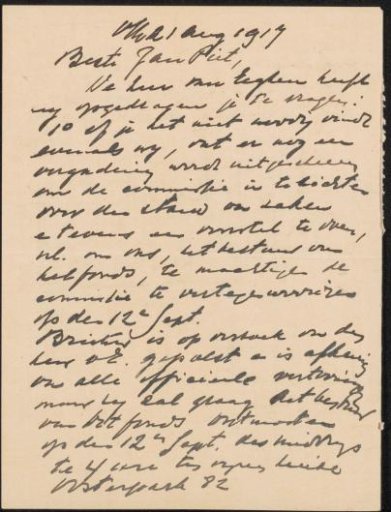 1 Aug 1917
Beste Jan Piet,
De heer van Eeghen heeft
mij opgedragen je te vragen:
1o of je het niet noodig vindt
evenals wij, dat er nog een
vergadering wordt uitgeschreven
om de commissie in te lichten
over den stand van zaken
et tevens een voorstel te doen,
nl. om ons, het bestuur van
het fonds, te machtigen de
commissie te vertegenwoordigen
op den 12e Sept.
is op verzoek van den
heer v. E. gepolst en is afkeerig
van alle officieele vertooning
maar hij zal graag het bestuur
van het fonds ontmoeten
op den 12en Sept. des middags
te 4 ure ten zijnen huize
Oosterpark 82